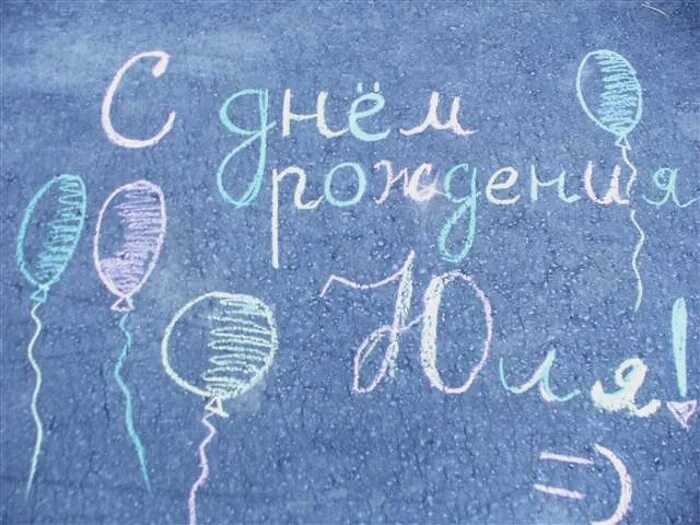 С днём
рождения
Юля!
=)